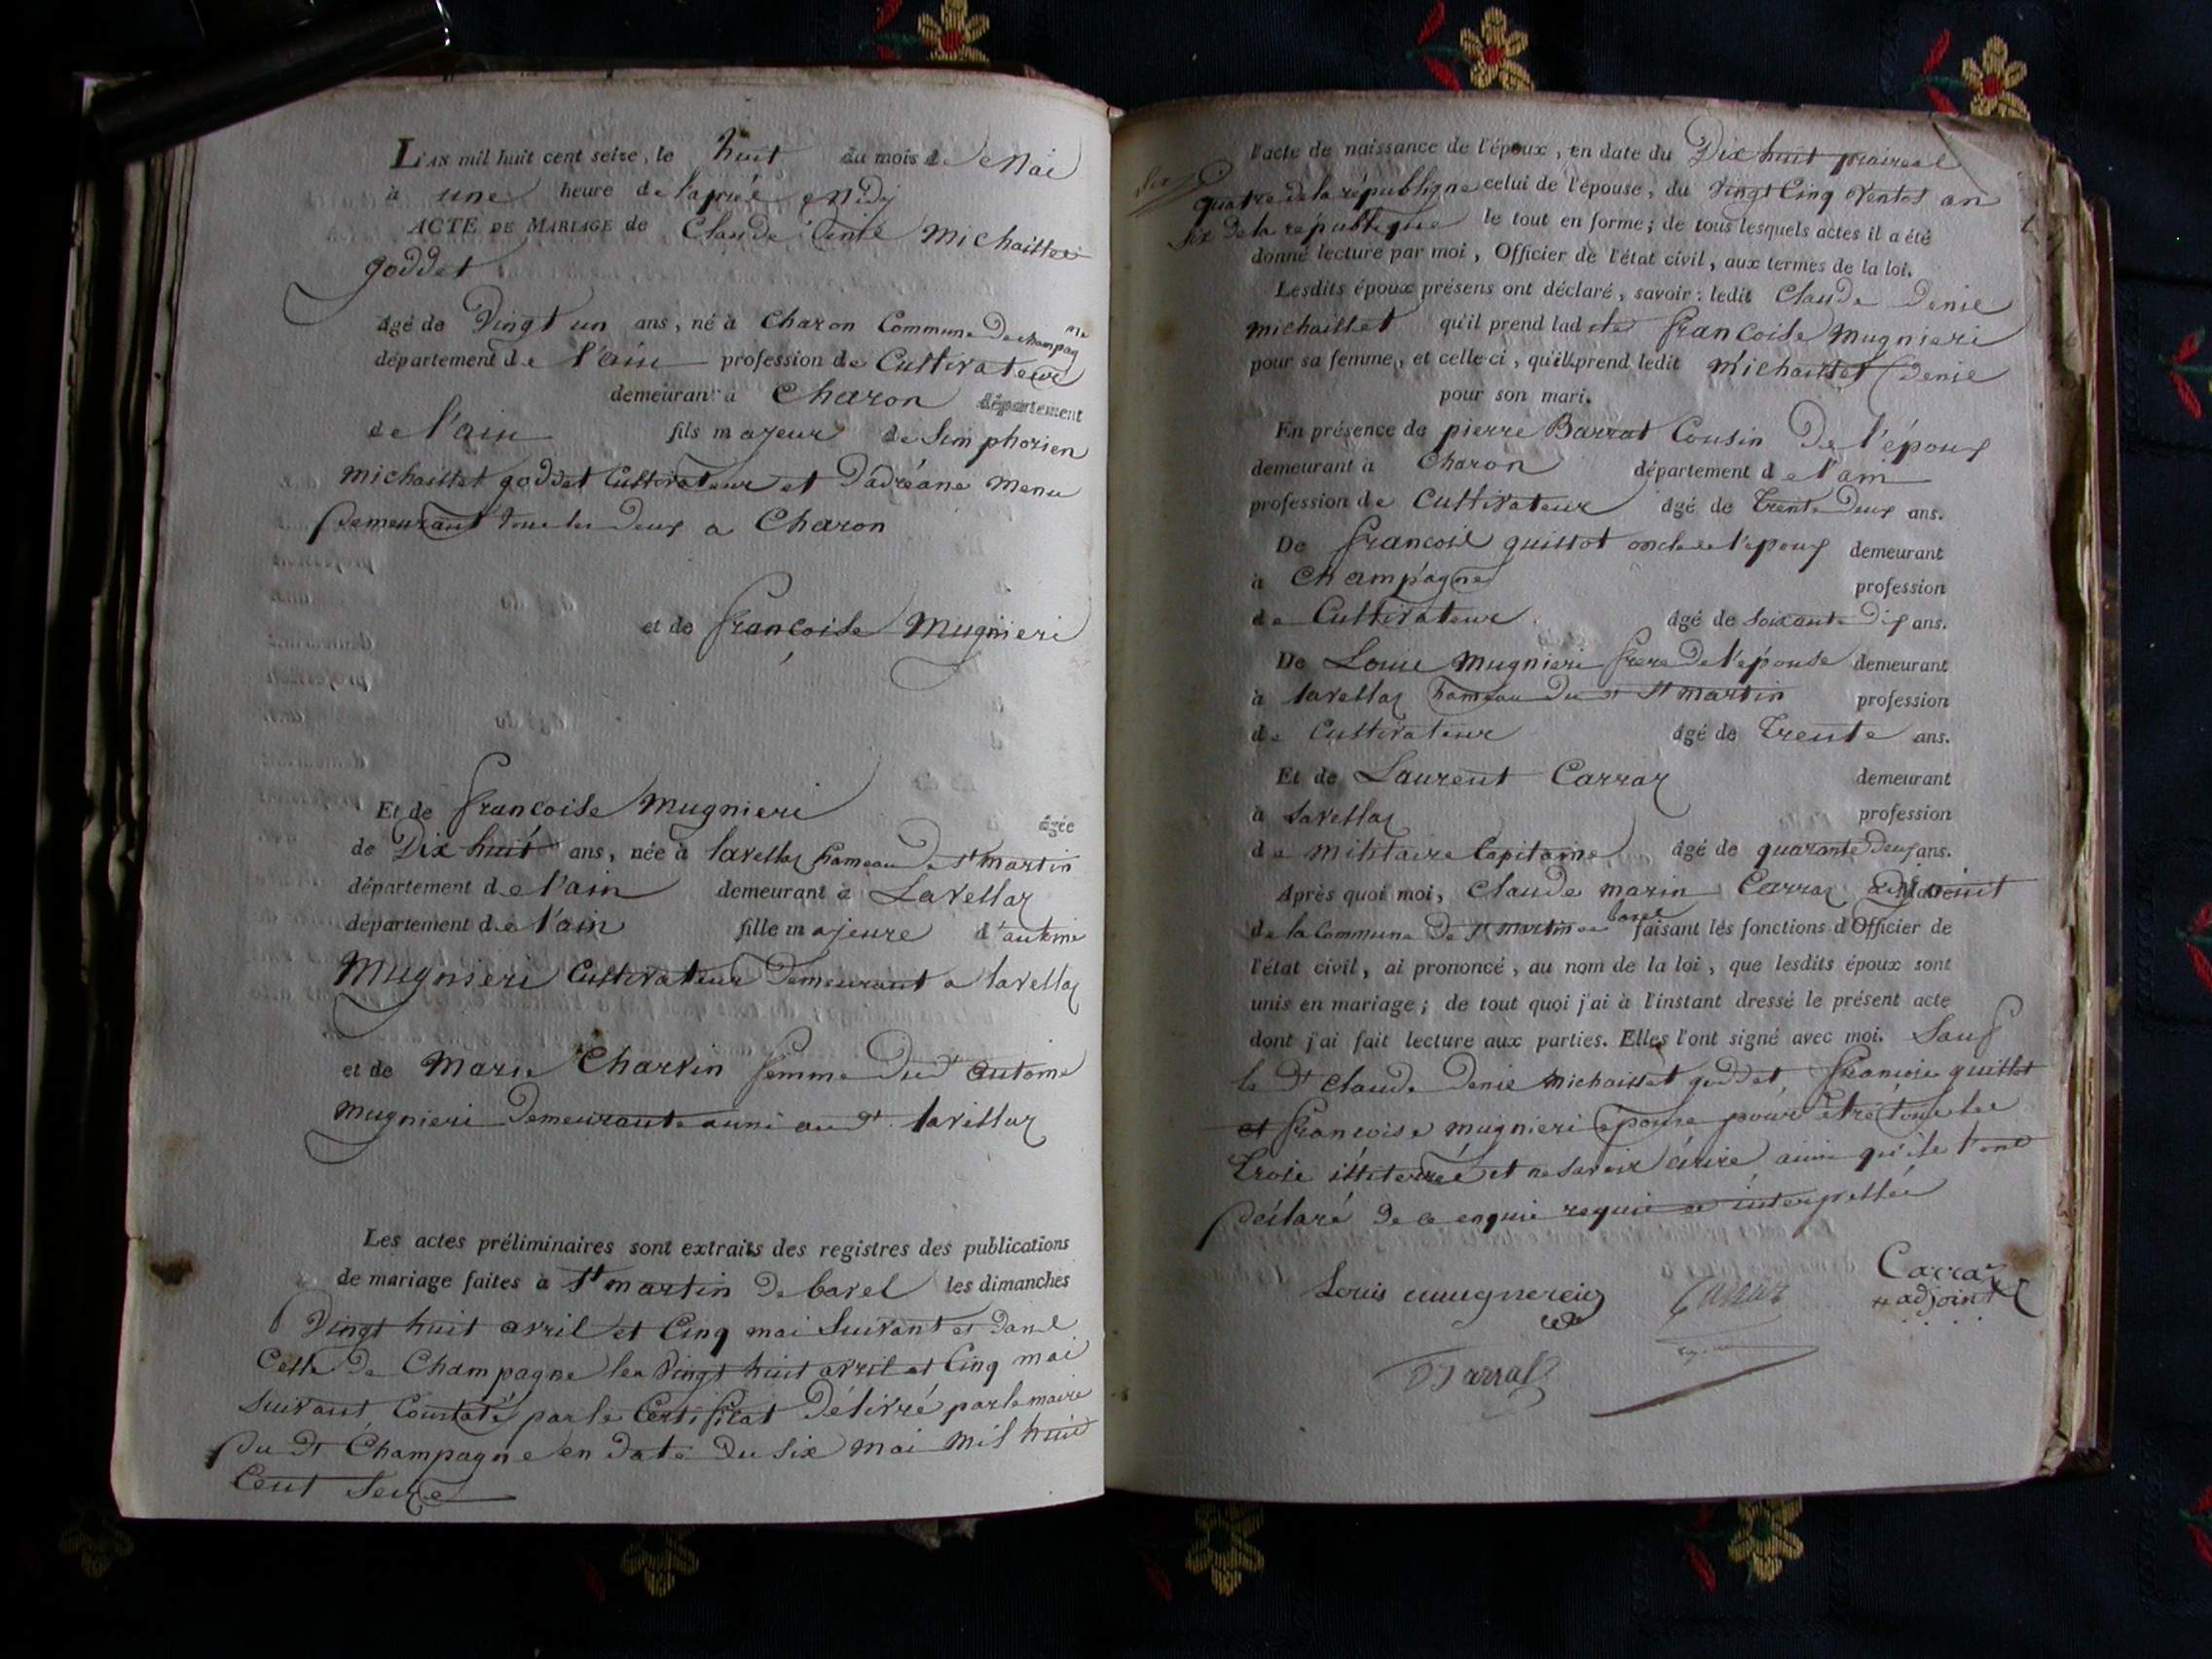 L'AN mil huit cent seize, le huit du mois de Mai
à une heure de l'après Midy
ACTE DE MARIAGE de Claude Denis Michaillet
goddet
âgé de Vingt un ans, né à Charon Commune De Champagne
département de l'ain profession de Cultivateur
demeurant à Charon département
de l'ain fils majeur de Simphorien
Michaillet goddet Cultivateur et D'adréane Menu
Demeurant tous les Deux a Charon
et de françoise Mugnieri
Et de francoise Mugnieri âgée
de Dix huit ans, née à lavellaz hameau De St martin
département de l'ain demeurant à Lavellaz
département de l'ain fille majeure d'antoine
Mugnieri Cultivateur Demeurant a lavellaz
et de Marie Charvin femme Dud antoine
Mugnieri Demeurante aussi aud. lavellaz
Les actes préliminaires sont extraits des registres des publications
de mariage faites à St martin De bavel les dimanches
Vingt huit avril et Cinq mai Suivant et Dans
Celle De Champagne les Vingt huit avril et Cinq mai
Suivant Constaté par le Certificat Délivré par le maire
Du Dt Champagne en Date Du Six Mai Mil huit
Cent Seize
l'acte de naissance de l'époux, en date du Dix huit prairéal
quatre de la république celui de l'épouse, du Vingt Cinq Ventos an
Six De la république le tout en forme; de tous lesquels actes il a été
donné lecture par moi, Officier de l'état civil, aux termes de la loi.
Lesdits époux présens ont déclaré, savoir: ledit Claude Denis
Michaillet qu'il prend ladite francoise Mugnieri
pour sa femme, et celle-ci, qu'ell prend ledit Michaillet Denis
pour son mari.
En présence de pierre Barrat Cousin De l'époux
demeurant à Charon département de l'ain
profession de Cultivateur âgé de trente Deux ans.
De francois guillot oncle de l'epoux demeurant
à Champagne profession
de Cultivateur âgé de Soixante Dix ans.
De Louis Mugnieri frere De l'épouse demeurant
à lavellaz hameau Du dt St martin profession
de Cultivateur âgé de Trente ans.
Et de Laurent Carraz demeurant
à Lavellaz profession
de Militaire Capitaine âgé de quarante Deux ans.
Après quoi moi, Claude marin Carraz
de la Commune De St martin de bavel faisant les fonctions d'Officier de
l'état civil, ai prononcé, au nom de la loi, que lesdits époux sont
unis en mariage; de tout quoi j'ai à l'instant dressé le présent acte
dont j'ai fait lecture aux parties. Elles l'ont signé avec moi. Sauf
le Dt Claude Denis Michaillet goddet, francois guillot
et francoise mugnieri épouse pour être tous les
Trois illiterés et ne Savoir écrire ainsi qu'ils l'ont
Déclaré De ce enquis requis et interpellés
Louis mugnereiz Carraz Carraz
adjoint
Barrat